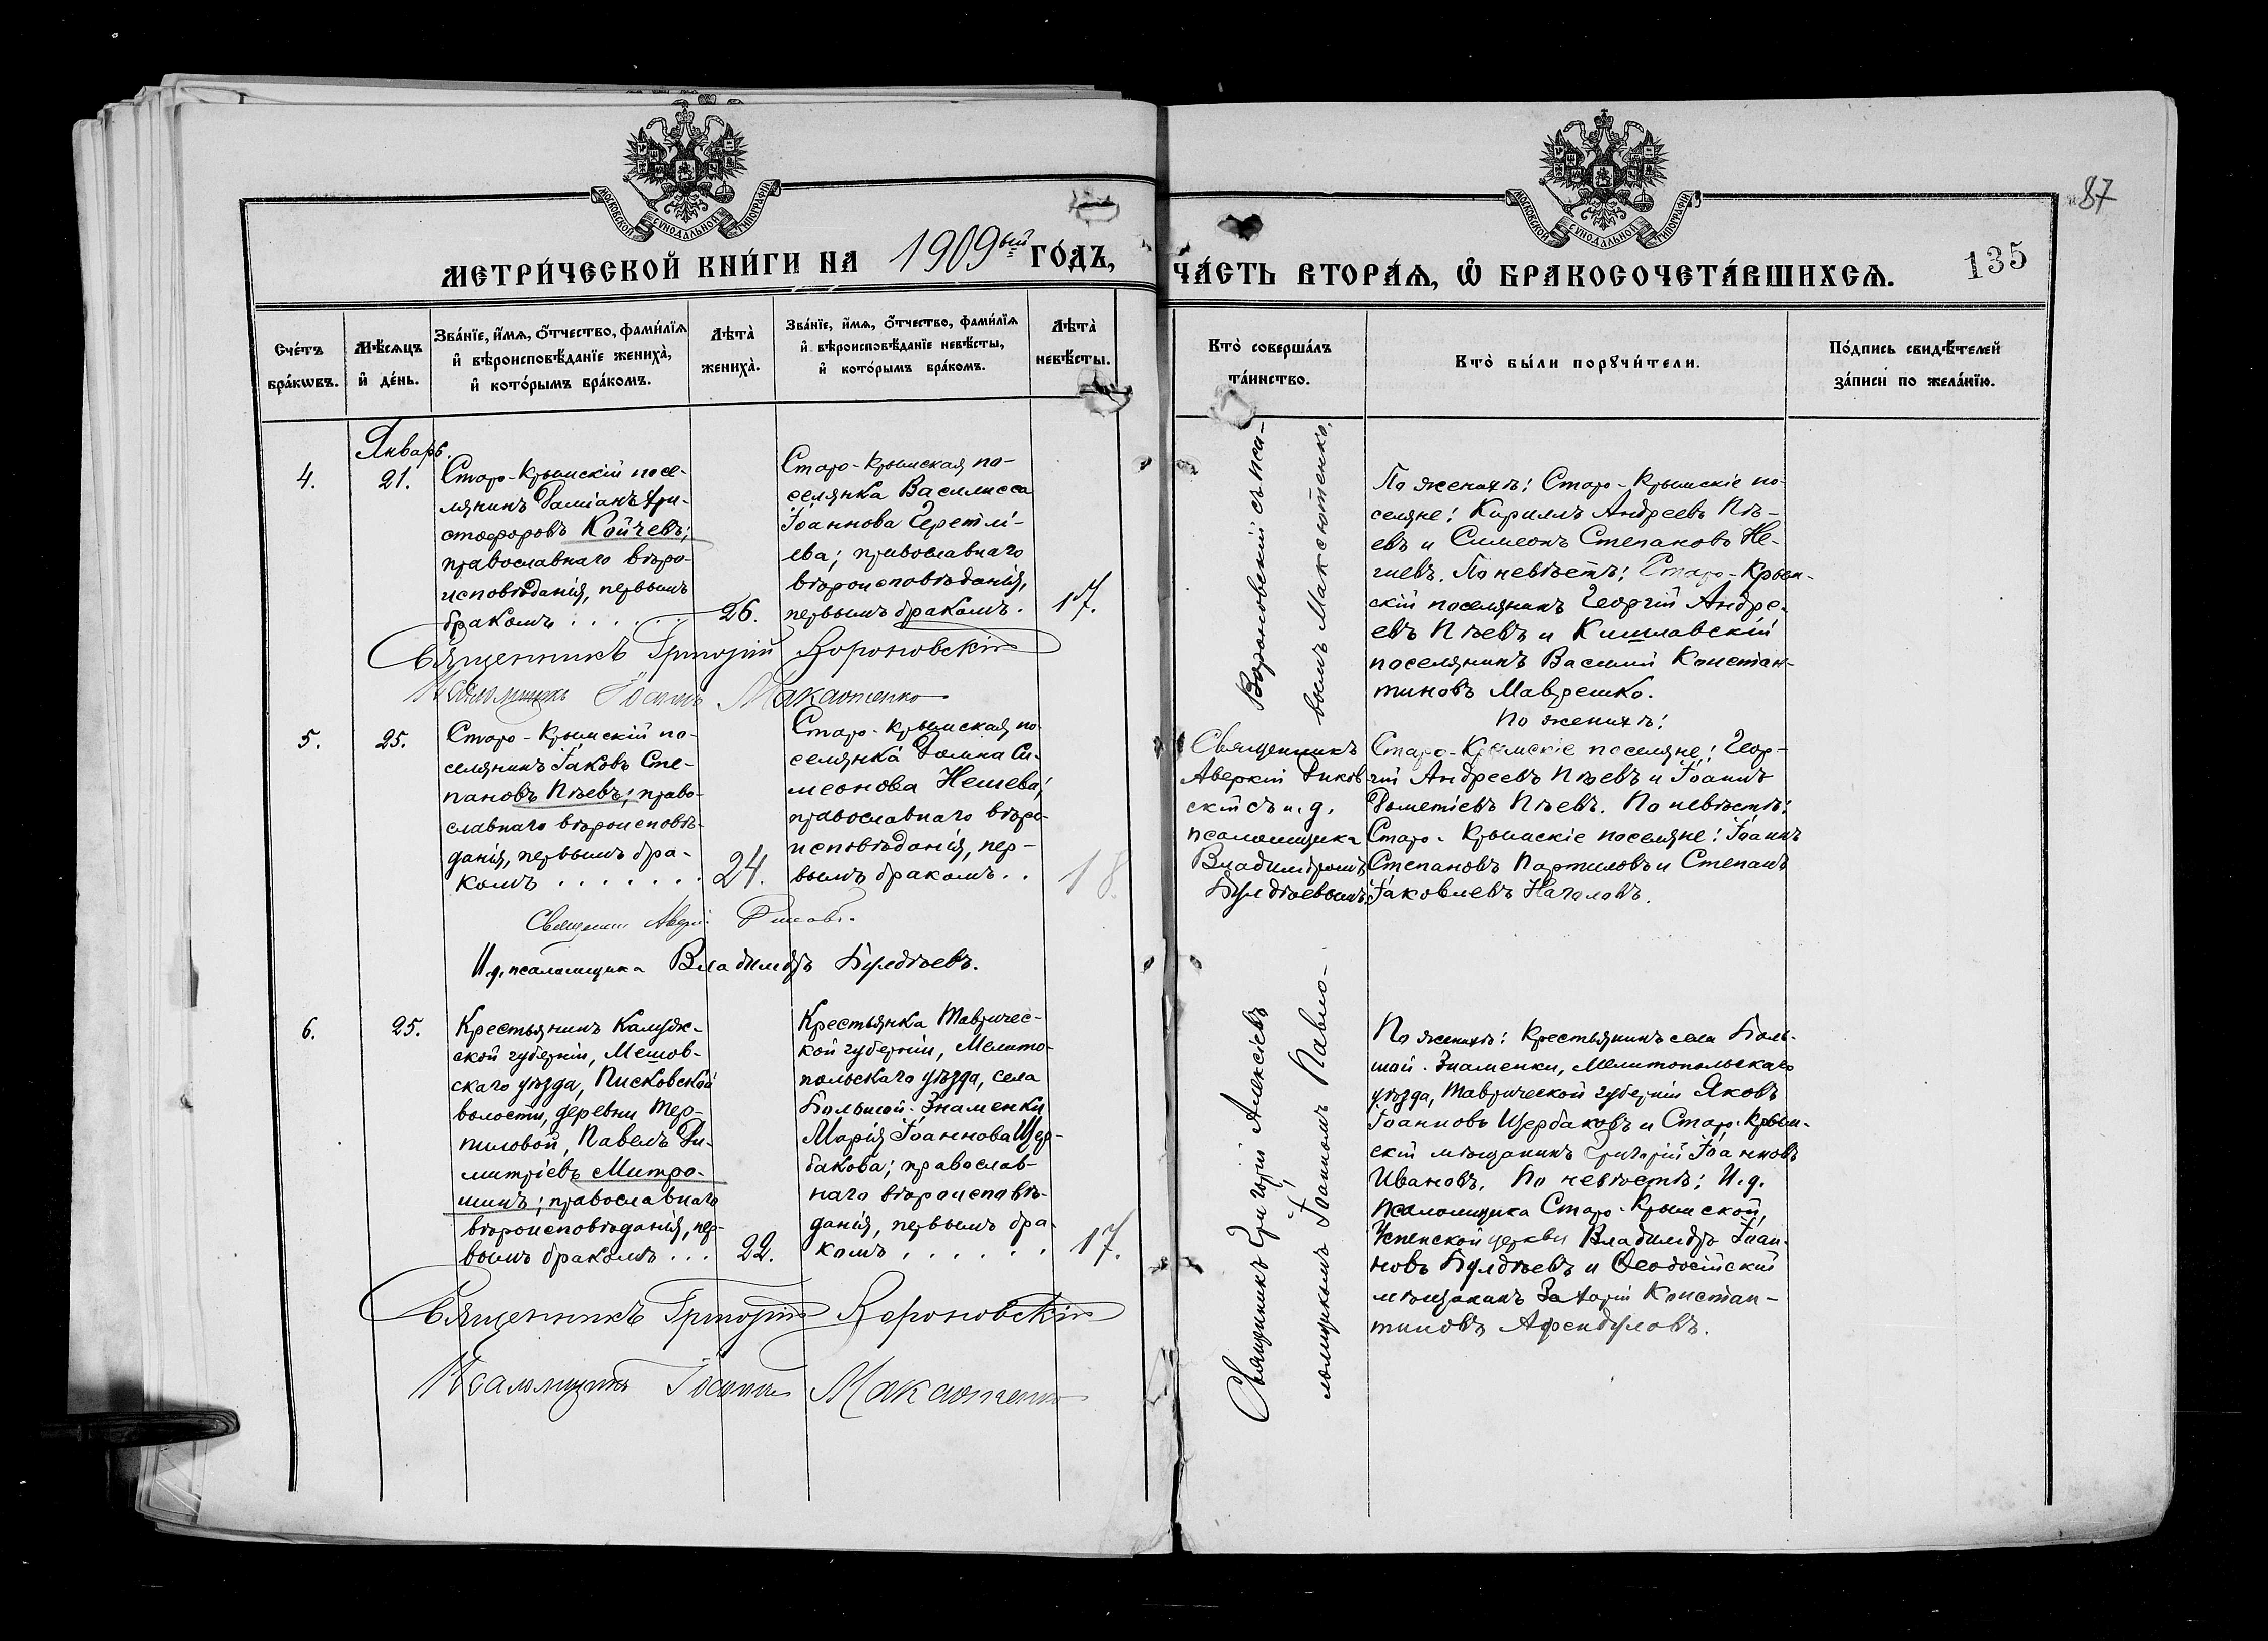 87
135
МОСКОВСКОЙ СУНОДАЛЬНОЙ ТИПОГРАФІИ
МОСКОВСКОЙ СУНОДАЛЬНОЙ ТИПОГРАФІИ
МЕТРИ́ЧЕСКОЙ КНИ́ГИ НА 1909ый ГО́ДЪ,
ЧА́СТЬ ВТОРА́Ѧ, Ѽ БРАКОСОЧЕТА́ВШИХСѦ.
Сче́тъ
бра́кѡвъ.
Мѣ́сяцъ
и҆ де́нь.
Зва́нїе, и҆́мѧ, о҆́тчество, фами́лїѧ
и҆ вѣроисповѣ́данїе жениха̀,
и҆ кото́рымъ бра́комъ.
Лѣта̀
жениха̀.
Зва́нїе, и҆́мѧ, о҆́тчество, фами́лїѧ
и҆ вѣроисповѣ́данїе невѣ́сты,
и҆ кото́рымъ бра́комъ.
Лѣта̀
невѣ́сты.
Кто̀ соверша́лъ
та́инство.
Кто̀ бы́ли порꙋчи́тели.
По́дпись свидѣ́телей
за́писи по жела́нїю.
4.
Январь.
21.
Старо-Крымскій посе-
лянинъ Даміанъ Хри-
стофоровъ Койчевъ;
православнаго вѣро-
исповѣданія, первымъ
бракомъ . . . . .
26.
Старо-Крымская по-
селянка Василисса
Іоаннова Черетлі-
ева; православнаго
вѣроисповѣданія,
первымъ бракомъ.
17.
Вороновскій съ пса-
вымъ Максютенко.
По женихѣ: Старо-Крымскіе по-
селяне: Кириллъ Андреевъ Пѣ-
евъ и Симеонъ Степановъ Не-
чиевъ. По невѣстѣ: Старо-Крым-
скій поселянинъ Георгій Андре-
евъ Пѣевъ и Кишлавскій
поселянинъ Василій Констан-
тиновъ Маврешко.
Священникъ Григорій Вороновскій
Псаломщикъ Іоаннъ Максютенко
5.
25.
Старо-Крымскій по-
селянинъ Іаковъ Сте-
пановъ Пѣевъ; право-
славнаго вѣроисповѣ-
данія, первымъ бра-
комъ . . . . . . .
24.
Старо-Крымская по-
селянка Домна Си-
меонова Нешева;
православнаго вѣро-
исповѣданія, пер-
вымъ бракомъ . .
18.
Священникъ
Аверкій Диков-
скій съ и. д.
псаломщика
Владиміромъ
Булдѣевымъ.
По женихѣ:
Старо-Крымскіе поселяне: Геор-
гій Андреевъ Пѣевъ и Іоаннъ
Дометіевъ Пѣевъ. По невѣстѣ:
Старо-Крымскіе поселяне: Іоаннъ
Степановъ Партиловъ и Степанъ
Іаковлевъ Началовъ.
И. д. псаломщика Владиміръ Булдѣевъ.
6.
25.
Крестьянинъ Калуж-
ской губерніи, Мещов-
скаго уѣзда, Писковской
волости, деревни Тер-
пиловой, Павелъ Ди-
митріевъ Митро-
шинъ; православнаго
вѣроисповѣданія, пер-
вымъ бракомъ . . .
22.
Крестьянка Тавричес-
кой губерніи, Мелито-
польскаго уѣзда, села
Большой-Знаменки
Марія Іоаннова Щер-
бакова; православ-
наго вѣроисповѣ-
данія, первымъ бра-
комъ . . . . . .
17.
Священникъ Григорій Алексіевъ
ломщикомъ Іоанномъ Павло-
По женихѣ: Крестьянинъ села Боль-
шой-Знаменки, Мелитопольскаго
уѣзда, Таврической губерніи Яковъ
Іоанновъ Щербаковъ и Старо-Крым-
скій мѣщанинъ Григорій Іоанновъ
Ивановъ. По невѣстѣ: И. д.
псаломщика Старо-Крымской,
Успенской церкви Владиміръ Іоан-
новъ Булдѣевъ и Ѳеодосійскій
мѣщанинъ Захарій Констан-
тиновъ Афендуловъ.
Священникъ Григорій Вороновскій
Псаломщикъ Іоаннъ Максютенко